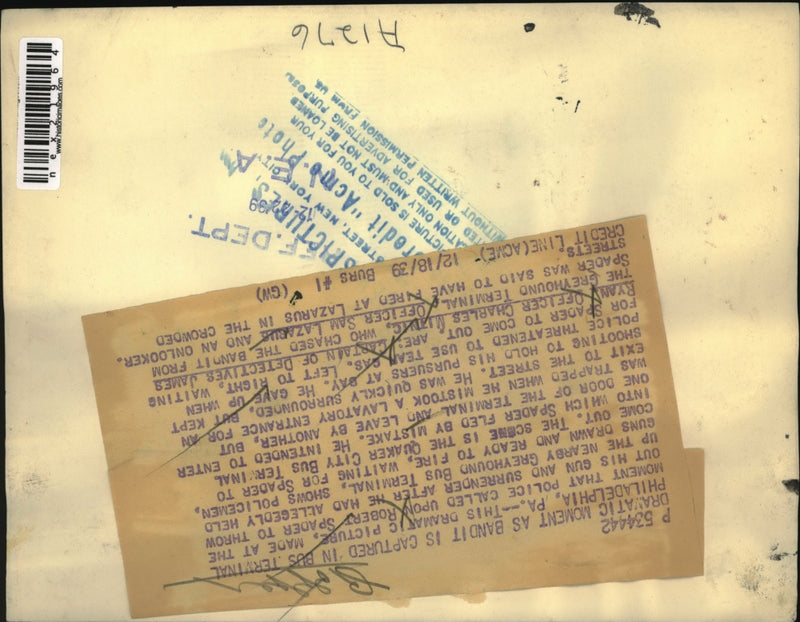 P 534442
DRAMATIC MOMENT AS BANDIT IS CAPTURED IN BUS TERMINAL
PHILADELPHIA, PA.--THIS DRAMATIC PICTURE, MADE AT THE
MOMENT THAT POLICE CALLED UPON ROBERT SPADER TO THROW
OUT HIS GUN AND SURRENDER AFTER HE HAD ALLEGEDLY HELD
UP THE NEARBY GREYHOUND BUS TERMINAL, SHOWS POLICEMEN,
GUNS DRAWN AND READY TO FIRE, WAITING FOR SPADER TO
COME OUT. THE SCENE IS THE QUAKER CITY BUS TERMINAL
INTO WHICH SPADER FLED BY MISTAKE. HE INTENDED TO ENTER
ONE DOOR OF THE TERMINAL AND LEAVE BY ANOTHER, BUT
WAS TRAPPED WHEN HE MISTOOK A LAVATORY ENTRANCE FOR AN
EXIT TO THE STREET. HE WAS QUICKLY SURROUNDED, BUT KEPT
SHOOTING TO HOLD HIS PURSUERS AT BAY. HE GAVE UP WHEN
POLICE THREATENED TO USE TEAR GAS. LEFT TO RIGHT, WAITING
FOR SPADER TO COME OUT ARE: CAPTAIN OF DETECTIVES JAMES
RYAN OFFICER CHARLES OFFICER SAM LAZARUS AND AN ONLOOKER.
THE GREYHOUND TERMINAL WHO CHASED THE BANDIT FROM
SPADER WAS SAID TO HAVE FIRED AT LAZARUS IN THE CROWDED
STREETS.
CREDIT LINE (ACME) 12/18/39 BURS #1 (GW)
PICTURES
STREET, NEW YORK CITY
Credit "Acme Photo
PICTURE IS SOLD TO YOU FOR YOUR
ONLY AND MUST NOT BE LOANED
OR USED FOR ADVERTISING PURPOSE
WITHOUT WRITTEN PERMISSION FROM US
DEPT.
N E A
A1276
nex21964
www.historicimages.com